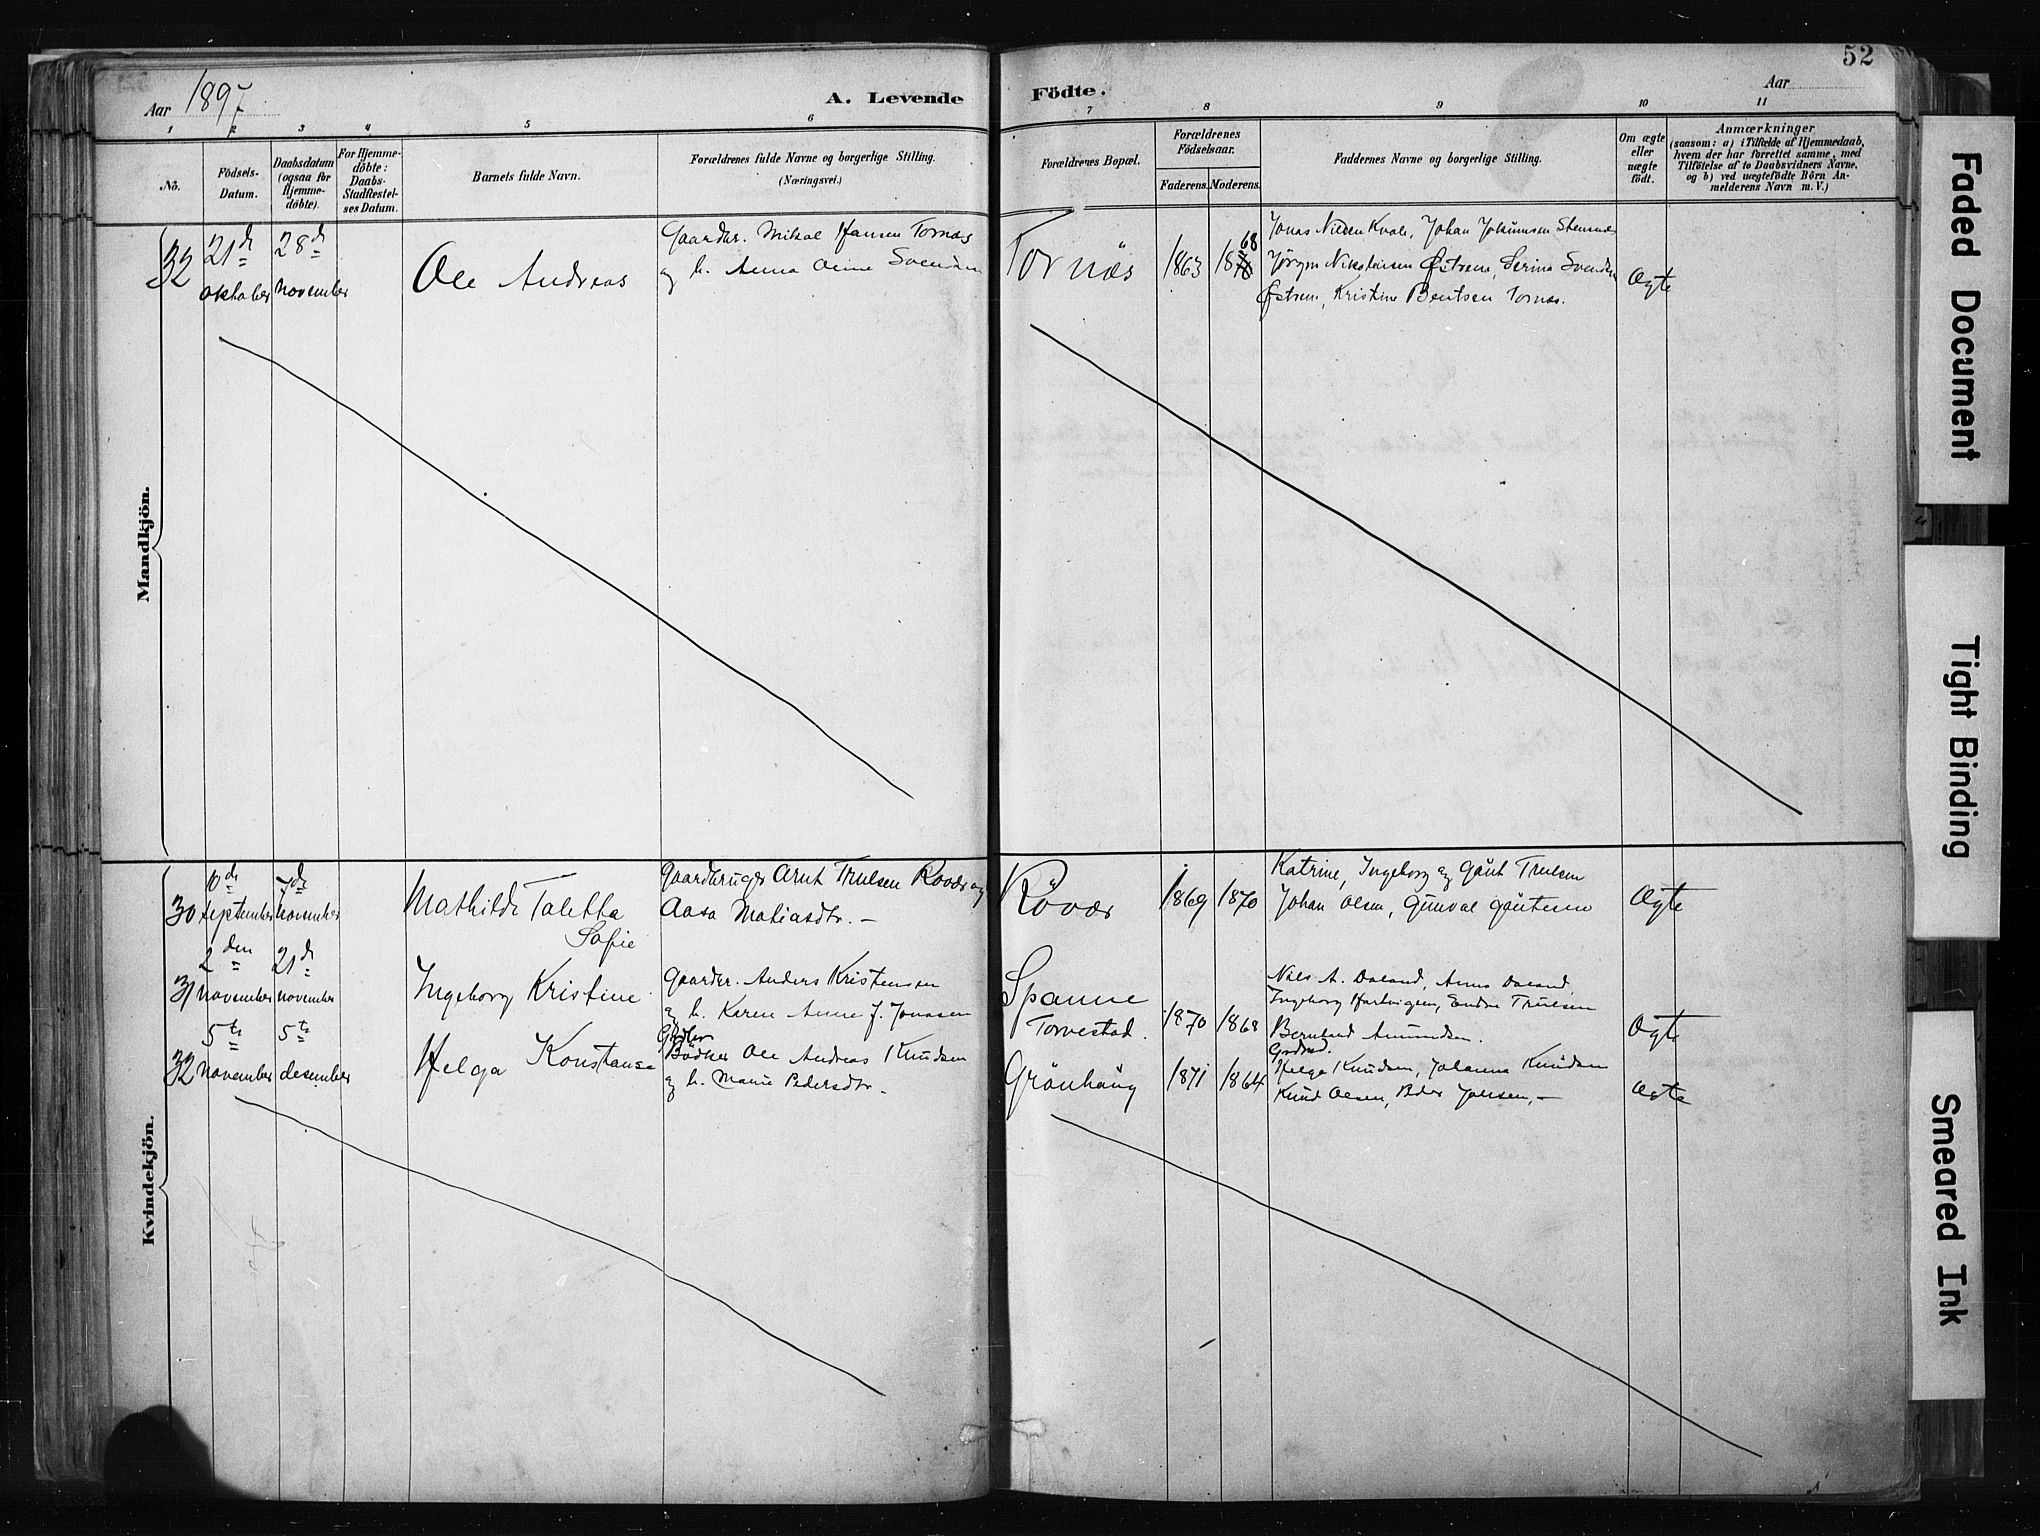 52
Aar 1897
A. Levende Födte.
Aar
1 2 3 4 5 6 7 8 9 10 11
No.
Födsels-
Datum.
Daabsdatum
(ogsaa for
Hjemme-
döbte).
For Hjemme-
döbte:
Daabs-
Stadfæstel-
ses Datum.
Barnets fulde Navn.
Forældrenes fulde Navne og borgerlige Stilling.
(Næringsvei.)
Forældrenes Bopæl.
Forældrenes
Födselsaar.
Faderens. Moderens.
Faddernes Navne og borgerlige Stilling.
Om ægte
eller
uægte
født.
Anmærkninger
(saasom: a) i Tilfælde af Hjemmedaab,
hvem der har forrettet samme, med
Tilföielse af to Daabsvidners Navne,
og b) ved uægtefödte Börn An-
melderens Navn m. V.)
Mandkjön.
32
21d
oktober
28d
november
Ole Andreas
Gaardbr. Mikal Hansen Tornæs
og h. Anna Oline Svendsen
Tornæs
1863
68
18
Jonas Nilsen Kvale, Johan Johannsen Stensnæs
Jörgen Nikolaisen Østrem, Serina Svendsen
Østrem, Kristine Bentsen Tornæs.
Ægte
Kvindekjön.
30
10de
september
7de
november
Mathilde Taletta
Sofie
Gaardbruger Arnt Truelsen Rövær og
Aasa Matiasdtr. —
Rövær
1869
1870
Katrine, Ingeborg og Gaut Truelsen
Johan Olsen, Gunval Gautesen
Ægte
31
2den
november
21d
november
Ingeborg Kristine
Gaardbr. Anders Kristensen
og h. Karen Anne J. Jonassen
Spanne
Torvestad.
1870
1868
Nils A. Daland, Anna Daland,
Ingeborg Hartvigsen, Endre Truelsen
Bernhard Amundsen.
Ægte
32
5te
november
5te
desember
Helga Konstanse
Bödker Ole Andreas Knudsen
og h. Marie Pedersdtr. —
Grönhaug
1871
1864
Helga Knudsen, Johanna Knudsen
Knud Olsen, Peder Jonsen, —
Ægte
Faded Document
Tight Binding
Smeared Ink